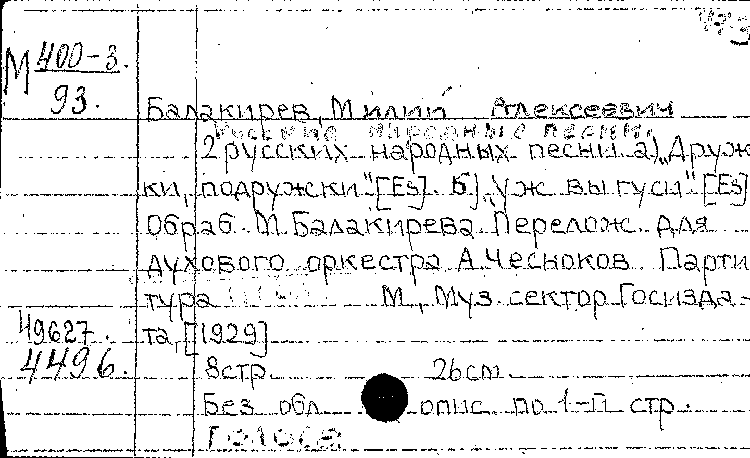 М 400-3.
93.
Балакирев, Милий Алексеевич
Русские народные песни.
2 русских народных песни а) „Друж
ки, подружки" [Es]. Б) „Уж вы гуси" [Es]
Обраб. М. Балакирева. Перелож. для
духового оркестра А. Чесноков. Парти
тура М., Муз. сектор Госизда-
49627. та, [1929]
4496. 8 стр. 26 cm.
Без обл. опис. по 1-й стр.
Голоса